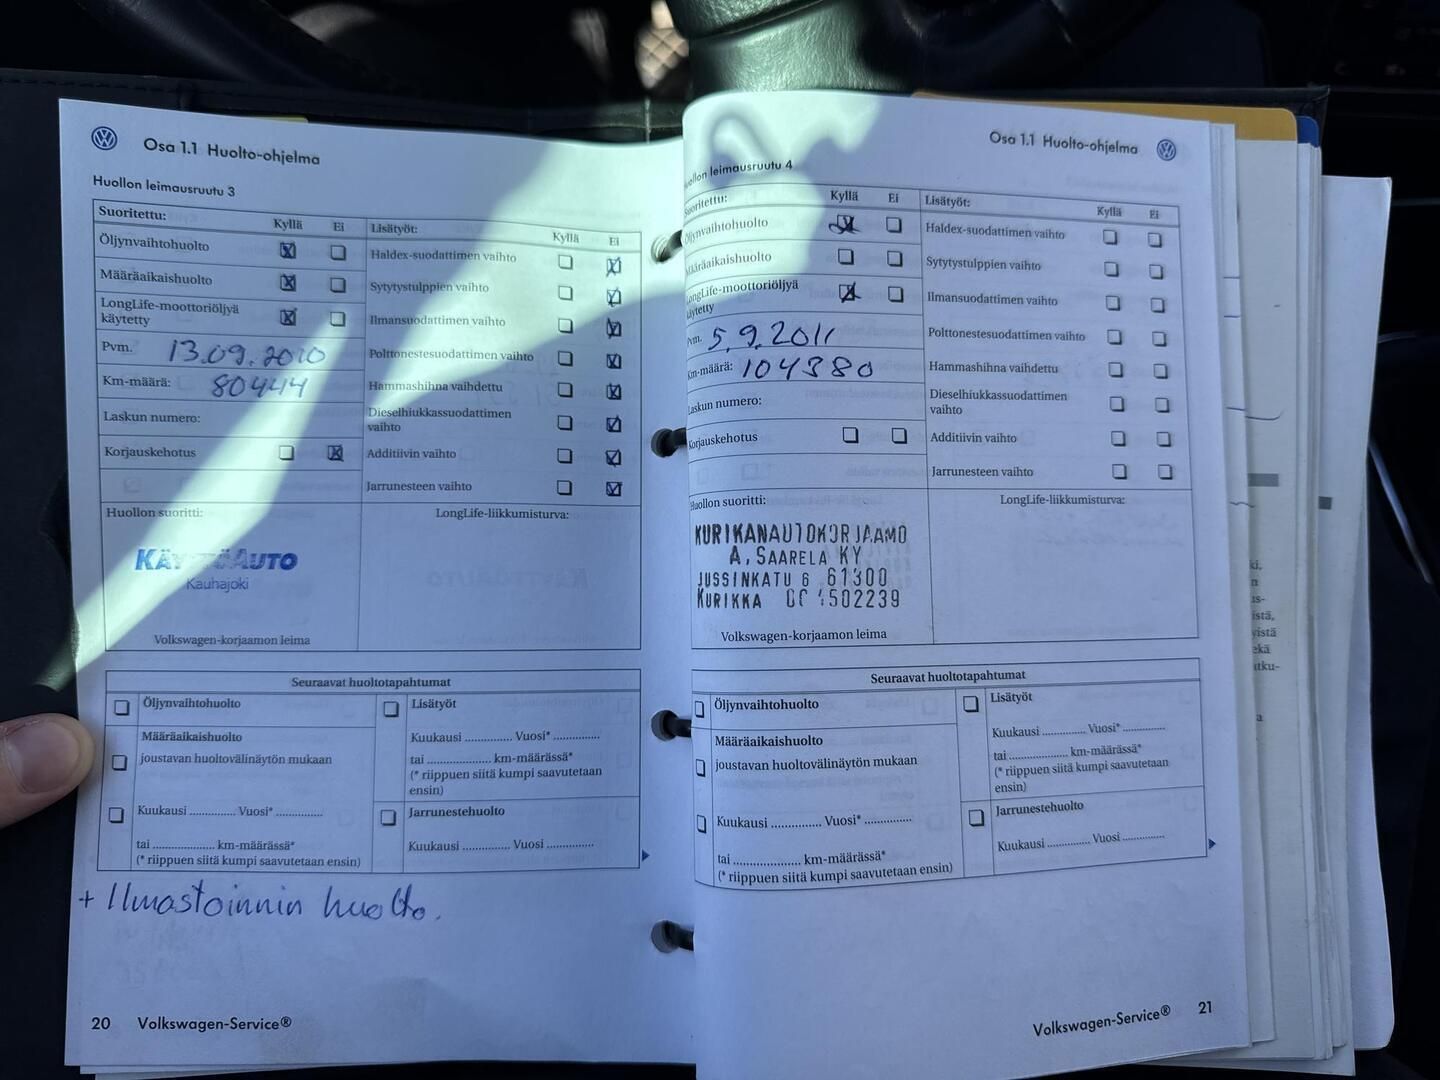 Osa 1.1 Huolto-ohjelma
Huollon leimausruutu 3
Suoritettu: Kyllä Ei
Öljynvaihtohuolto
Määräaikaishuolto
LongLife-moottoriöljyä
käytetty
Pvm. 13.09.2010
Km-määrä: 80444
Laskun numero:
Korjauskehotus
Lisätyöt: Kyllä Ei
Haldex-suodattimen vaihto
Sytytystulppien vaihto
Ilmansuodattimen vaihto
Polttonestesuodattimen vaihto
Hammashihna vaihdettu
Dieselhiukkassuodattimen
vaihto
Additiivin vaihto
Jarrunesteen vaihto
Huollon suoritti:
KÄYTTÖAUTO
Kauhajoki
Volkswagen-korjaamon leima
LongLife-liikkumisturva:
Seuraavat huoltotapahtumat
Öljynvaihtohuolto
Määräaikaishuolto
joustavan huoltovälinäytön mukaan
Kuukausi .............. Vuosi* ..............
tai ................... km-määrässä*
(* riippuen siitä kumpi saavutetaan ensin)
Lisätyöt
Kuukausi .............. Vuosi* ..............
tai ................... km-määrässä*
(* riippuen siitä kumpi saavutetaan
ensin)
Jarrunestehuolto
Kuukausi .............. Vuosi ..............
+ Ilmastoinnin huolto.
20 Volkswagen-Service®
Osa 1.1 Huolto-ohjelma
Huollon leimausruutu 4
Suoritettu: Kyllä Ei
Öljynvaihtohuolto
Määräaikaishuolto
LongLife-moottoriöljyä
käytetty
Pvm. 5.9.2011
Km-määrä: 104380
Laskun numero:
Korjauskehotus
Lisätyöt: Kyllä Ei
Haldex-suodattimen vaihto
Sytytystulppien vaihto
Ilmansuodattimen vaihto
Polttonestesuodattimen vaihto
Hammashihna vaihdettu
Dieselhiukkassuodattimen
vaihto
Additiivin vaihto
Jarrunesteen vaihto
Huollon suoritti:
KURIKANAUTOKORJAAMO
A. SAARELA KY
JUSSINKATU 6 61300
KURIKKA
Volkswagen-korjaamon leima
LongLife-liikkumisturva:
Seuraavat huoltotapahtumat
Öljynvaihtohuolto
Määräaikaishuolto
joustavan huoltovälinäytön mukaan
Kuukausi .............. Vuosi* ..............
tai ................... km-määrässä*
(* riippuen siitä kumpi saavutetaan ensin)
Lisätyöt
Kuukausi .............. Vuosi* ..............
tai ................... km-määrässä*
(* riippuen siitä kumpi saavutetaan
ensin)
Jarrunestehuolto
Kuukausi .............. Vuosi ..............
Volkswagen-Service® 21